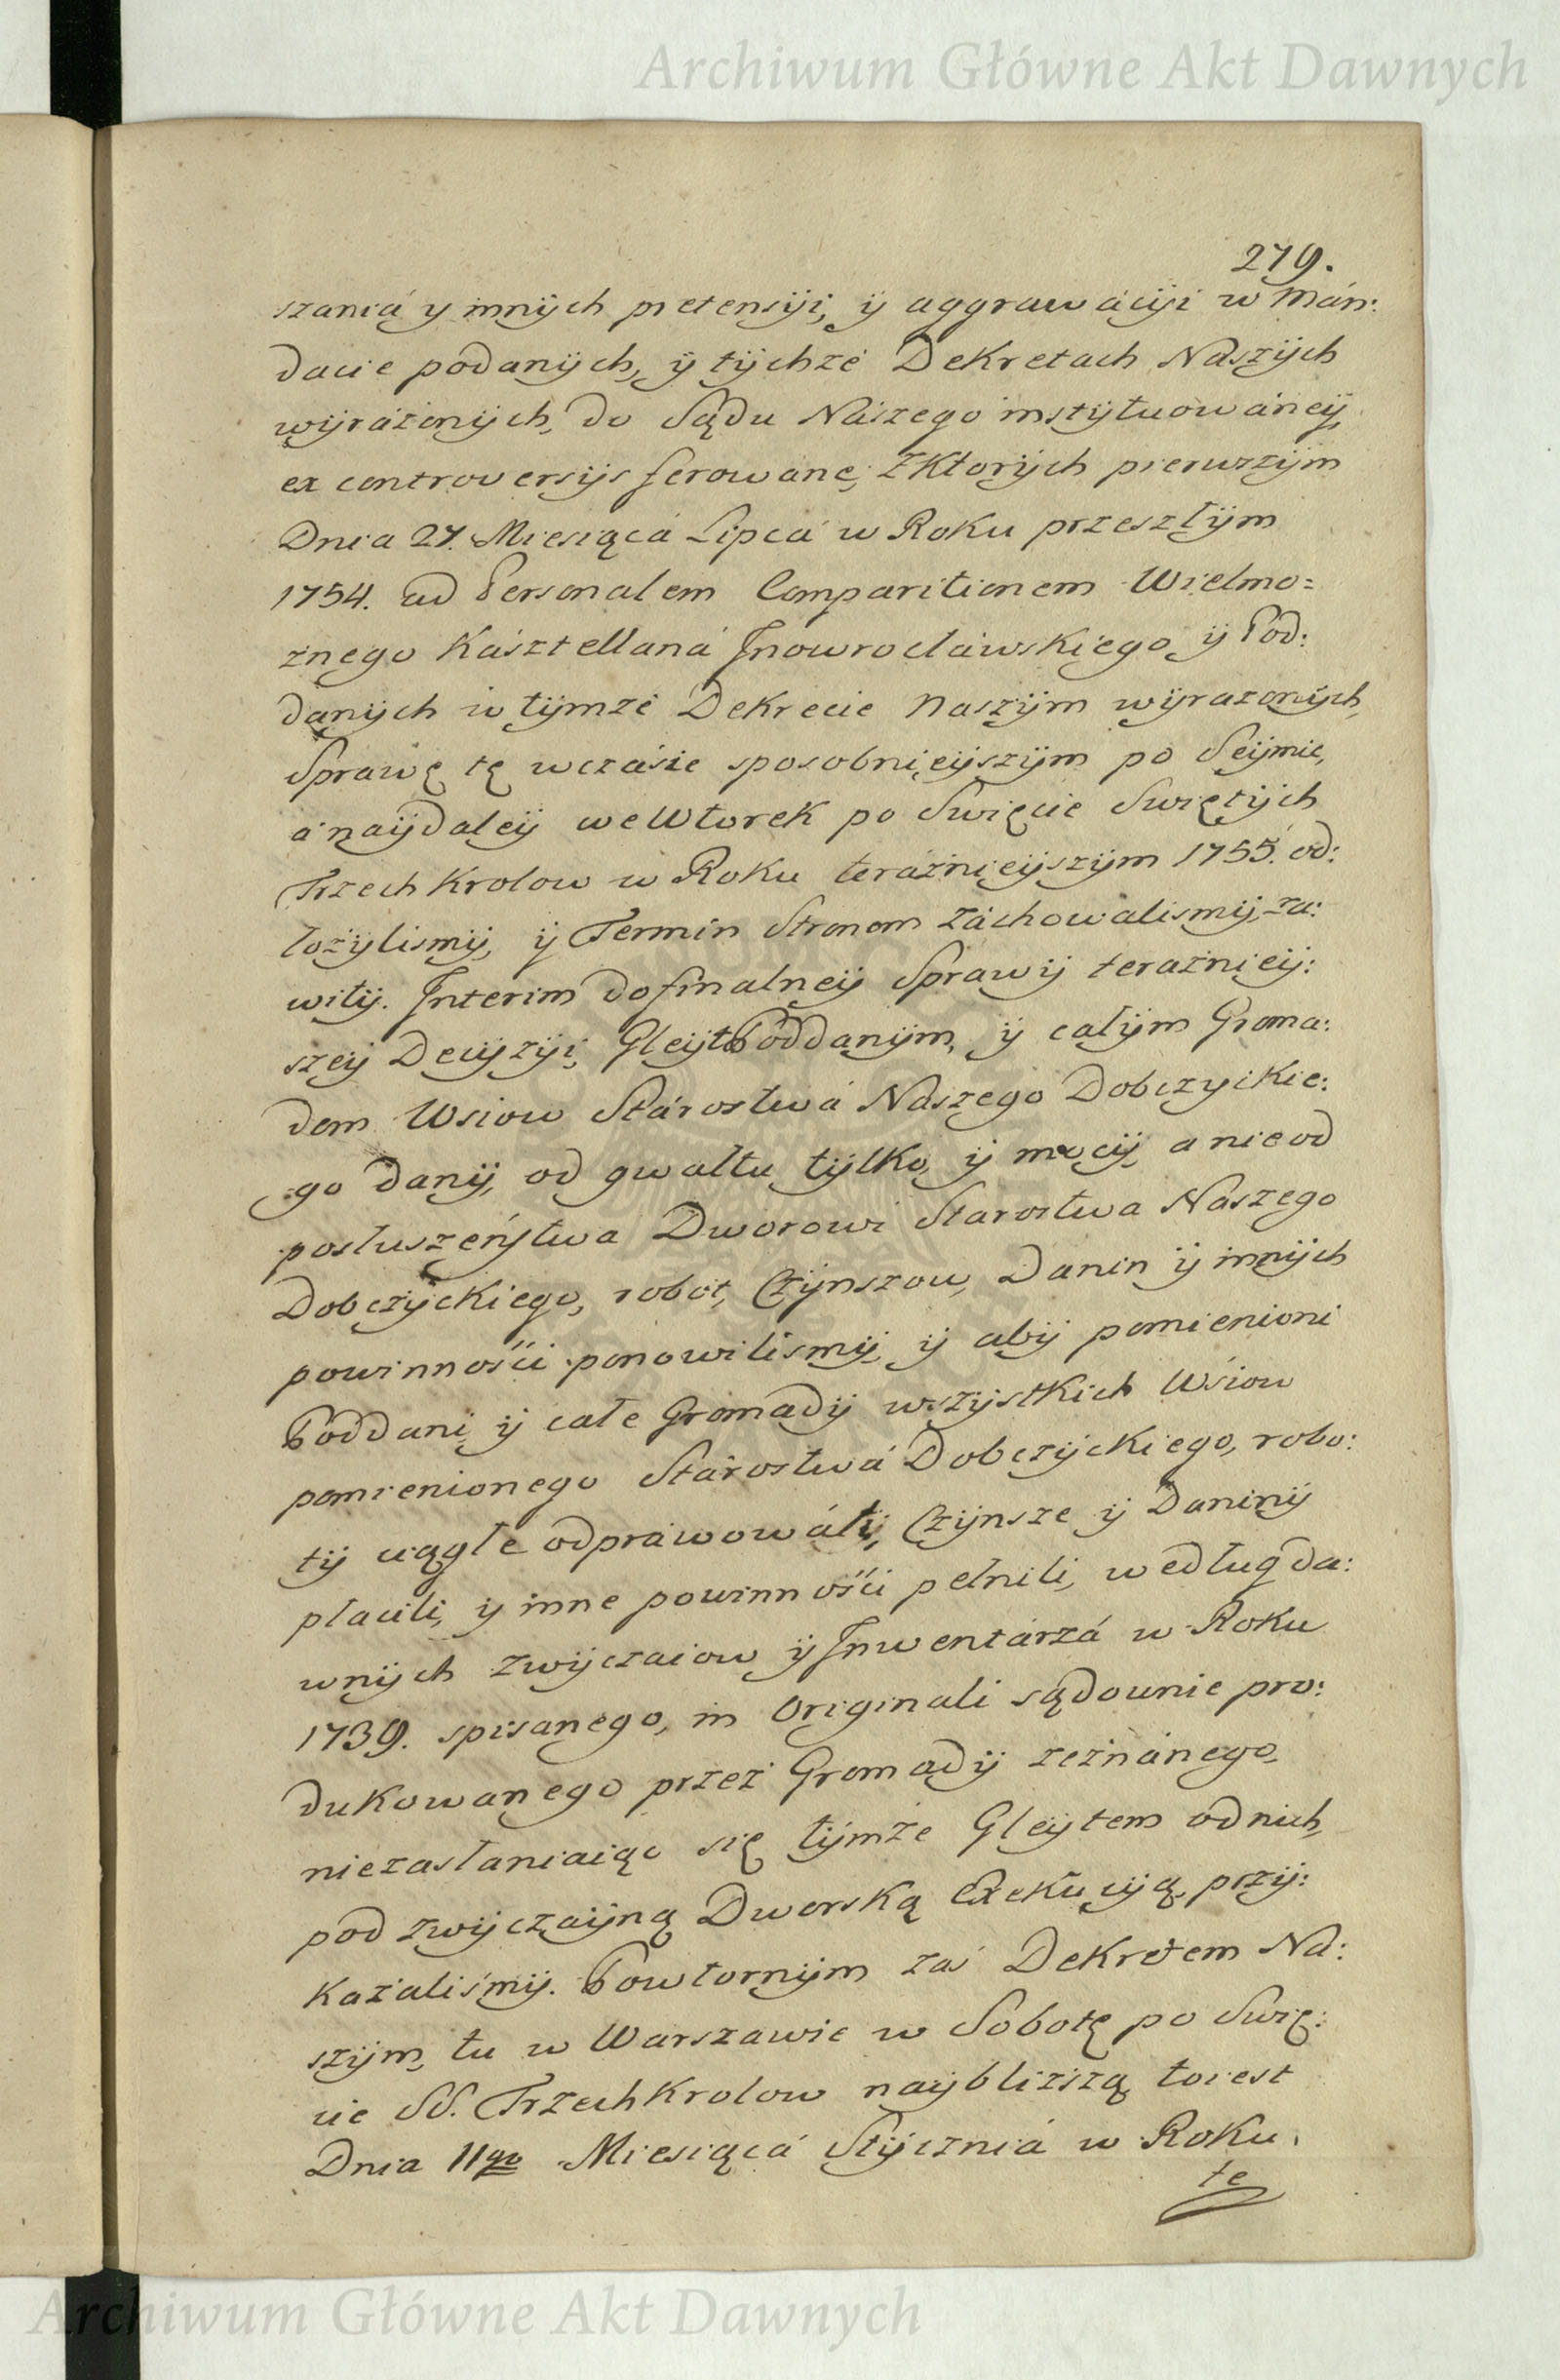 Archiwum Główne Akt Dawnych
279.
szaniá y innÿch pretensÿi, ÿ aggrawácÿi w Mán:
dacie podanÿch, ÿ tÿchże Dekretach Naszÿch
wÿrażonÿch, do Sądu Nászego instÿtuowáneÿ,
ex controversijs ferowane, z Ktorÿch pierwszÿm
Dnia 27. Miesiąca Lipca w Roku przeszłÿm
1754. ad Personalem Comparitionem Wielmo=
żnego Kásztellaná Jnowrocláwskiego, ÿ Pod:
danÿch w tÿmże Dekrecie Naszÿm wÿrażonÿch,
Sprawę tę wczásie sposobnieÿszÿm po Seÿmie,
a naÿdaleÿ we Wtorek po Swięcie Swiętÿch
Trzech Krolow w Roku teráżnieÿszÿm 1755. od:
łożÿlismÿ, ÿ Termin Stronom záchowalismÿ za:
witÿ. Jnterim do finalneÿ Sprawÿ terażnieÿ:
szeÿ Decÿzÿi, Gleÿt Poddanÿm, ÿ całÿm Groma:
dom Wsiow Stárostwá Naszego Dobczyckie:
go danÿ, od gwałtu tÿlko, ÿ mocÿ, a nie od
posłuszeństwa Dworowi Starostwa Naszego
Dobczÿckiego, robot, Czÿnszow, Danin ÿ innÿch
powinności ponowilismÿ, ÿ abÿ pomienioni
Poddani ÿ całe Gromadÿ wszÿstkich Wsiow
pomienionego Stárostwá Dobczÿckiego, robo:
tÿ ciągłe odpráwowáłÿ, Czÿnsze ÿ Daninÿ
płacili, ÿ inne powinności pełnili, według da:
wnÿch zwÿczaiow ÿ Jnwentárzá w Roku
1739. spisanego, in Originali sądownie pro:
dukowanego przez Gromadÿ zeznánego,
niezasłaniaiąc się tÿmże Gleÿtem od nich,
pod zwÿczaÿną Dworską Exekucÿą, przÿ:
kazaliśmÿ. Powtornÿm zaś Dekretem Na:
szÿm, tu w Warszawie w Sobotę po Swię:
cie SS. Trzech Krolow naÿbliższą, to iest
Dnia 11go Miesiącá Stÿczniá w Roku
te
Archiwum Główne Akt Dawnych